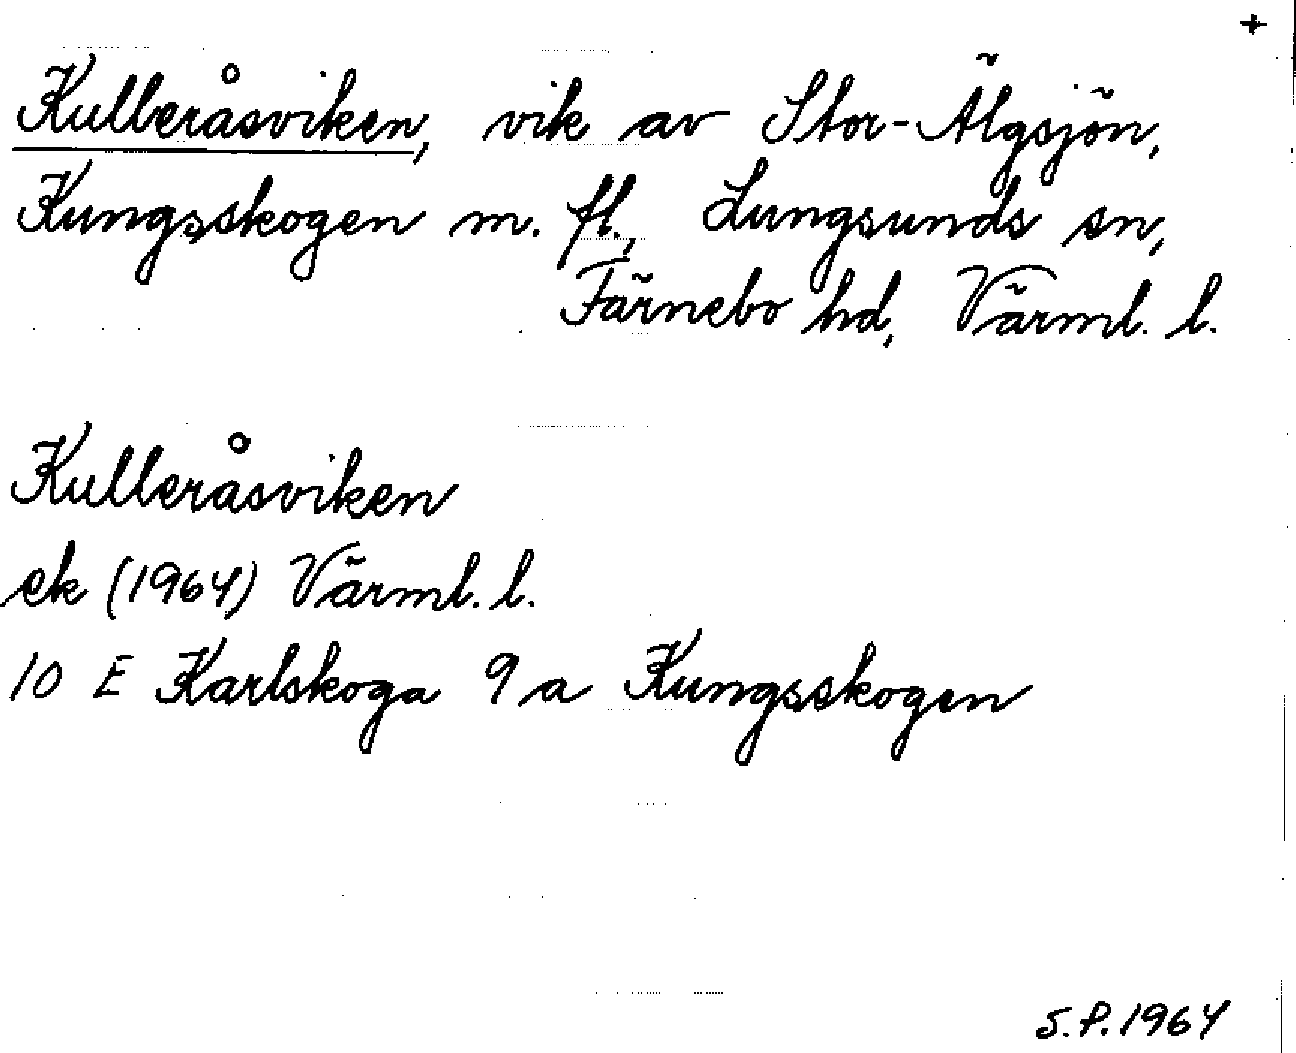 +
Kulleråsviken, vik av Stor-Älgsjön,
Kungsskogen m. fl., Lungsunds sn,
Färnebo hd, Värml. l.
Kulleråsviken
ek (1964) Värml. l.
10 E Karlskoga 9 a Kungsskogen
S.P. 1964